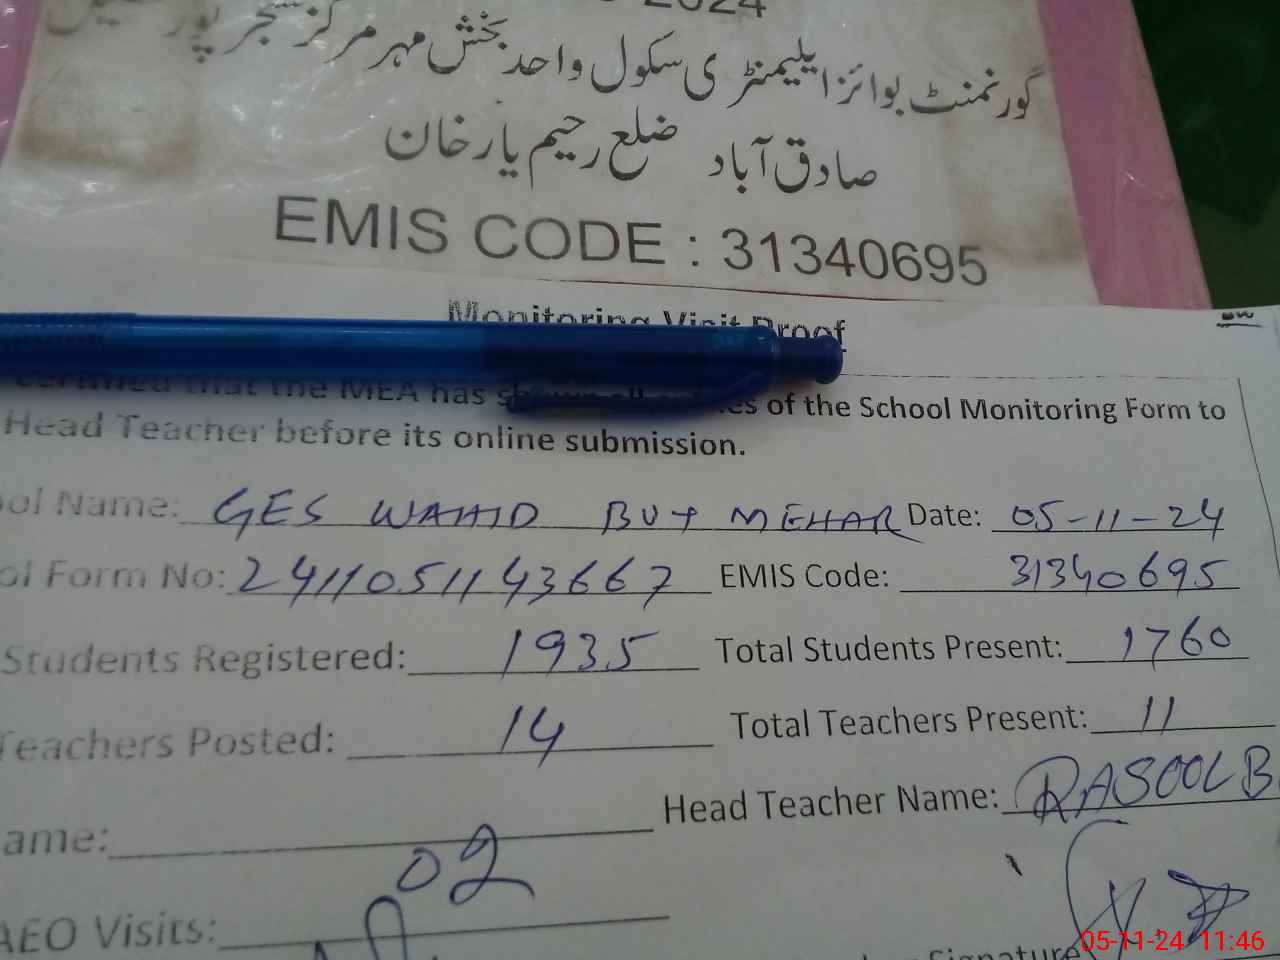 2024
گورنمنٹ بوائز ایلیمنٹری سکول واحد بخش مہر مرکز سنجر پور
صادق آباد ضلع رحیم یار خان
EMIS CODE : 31340695
Monitoring Visit Proof
certified that the MEA has shown all of the School Monitoring Form to
Head Teacher before its online submission.
ool Name: GES WAHID BUX MEHAR Date: 05-11-24
ol Form No: 2411051143667 EMIS Code: 31340695
Students Registered: 1935 Total Students Present: 1760
Teachers Posted: 14 Total Teachers Present: 11
ame: Head Teacher Name: RASOOL B
AEO Visits: 02
Signature
05-11-24 11:46